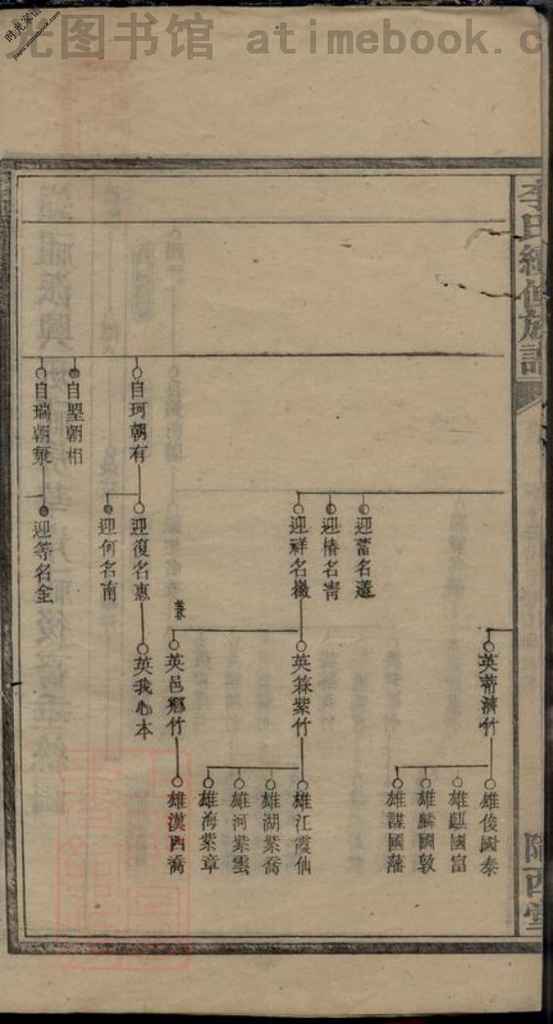 光图书馆 atimebook.c
时光
李氏續修族譜
隴西堂
英蒂濟竹
雄俊國泰
雄麒國富
雄麟國敦
雄謀國藩
迎蓄名蓬
迎椿名靑
迎祥名徵
英森紫竹
雄江霞仙
雄湖紫喬
雄河紫雲
雄海紫章
英邑 竹
雄漢西喬
自珂朝有
迎復名惠
英我心本
迎何名南
自堅朝相
自瑞朝秉
迎等名全